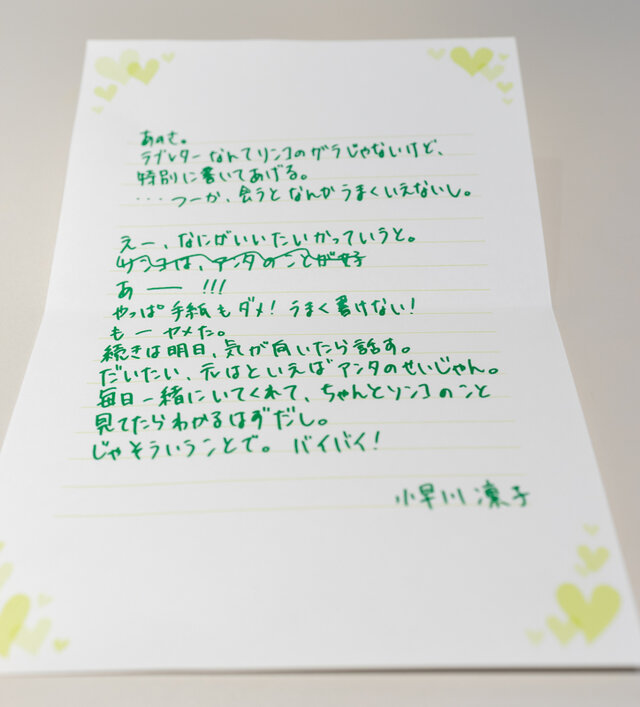 あのさ。
ラブレターなんてリンコのガラじゃないけど、
特別に書いてあげる。
・・・つーか、会うとなんかうまくいえないし。
えー、なにがいいたいかっていうと。
リンコは、アンタのことが好子
あー!!!
やっぱ手紙もダメ!うまく書けない!
もーヤメた。
続きは明日、気が向いたら話す。
だいたい、元はといえばアンタのせいじゃん。
毎日一緒にいてくれて、ちゃんとリンコのこと
見てたらわかるはずだし。
じゃそういうことで。バイバイ!
小早川凛子